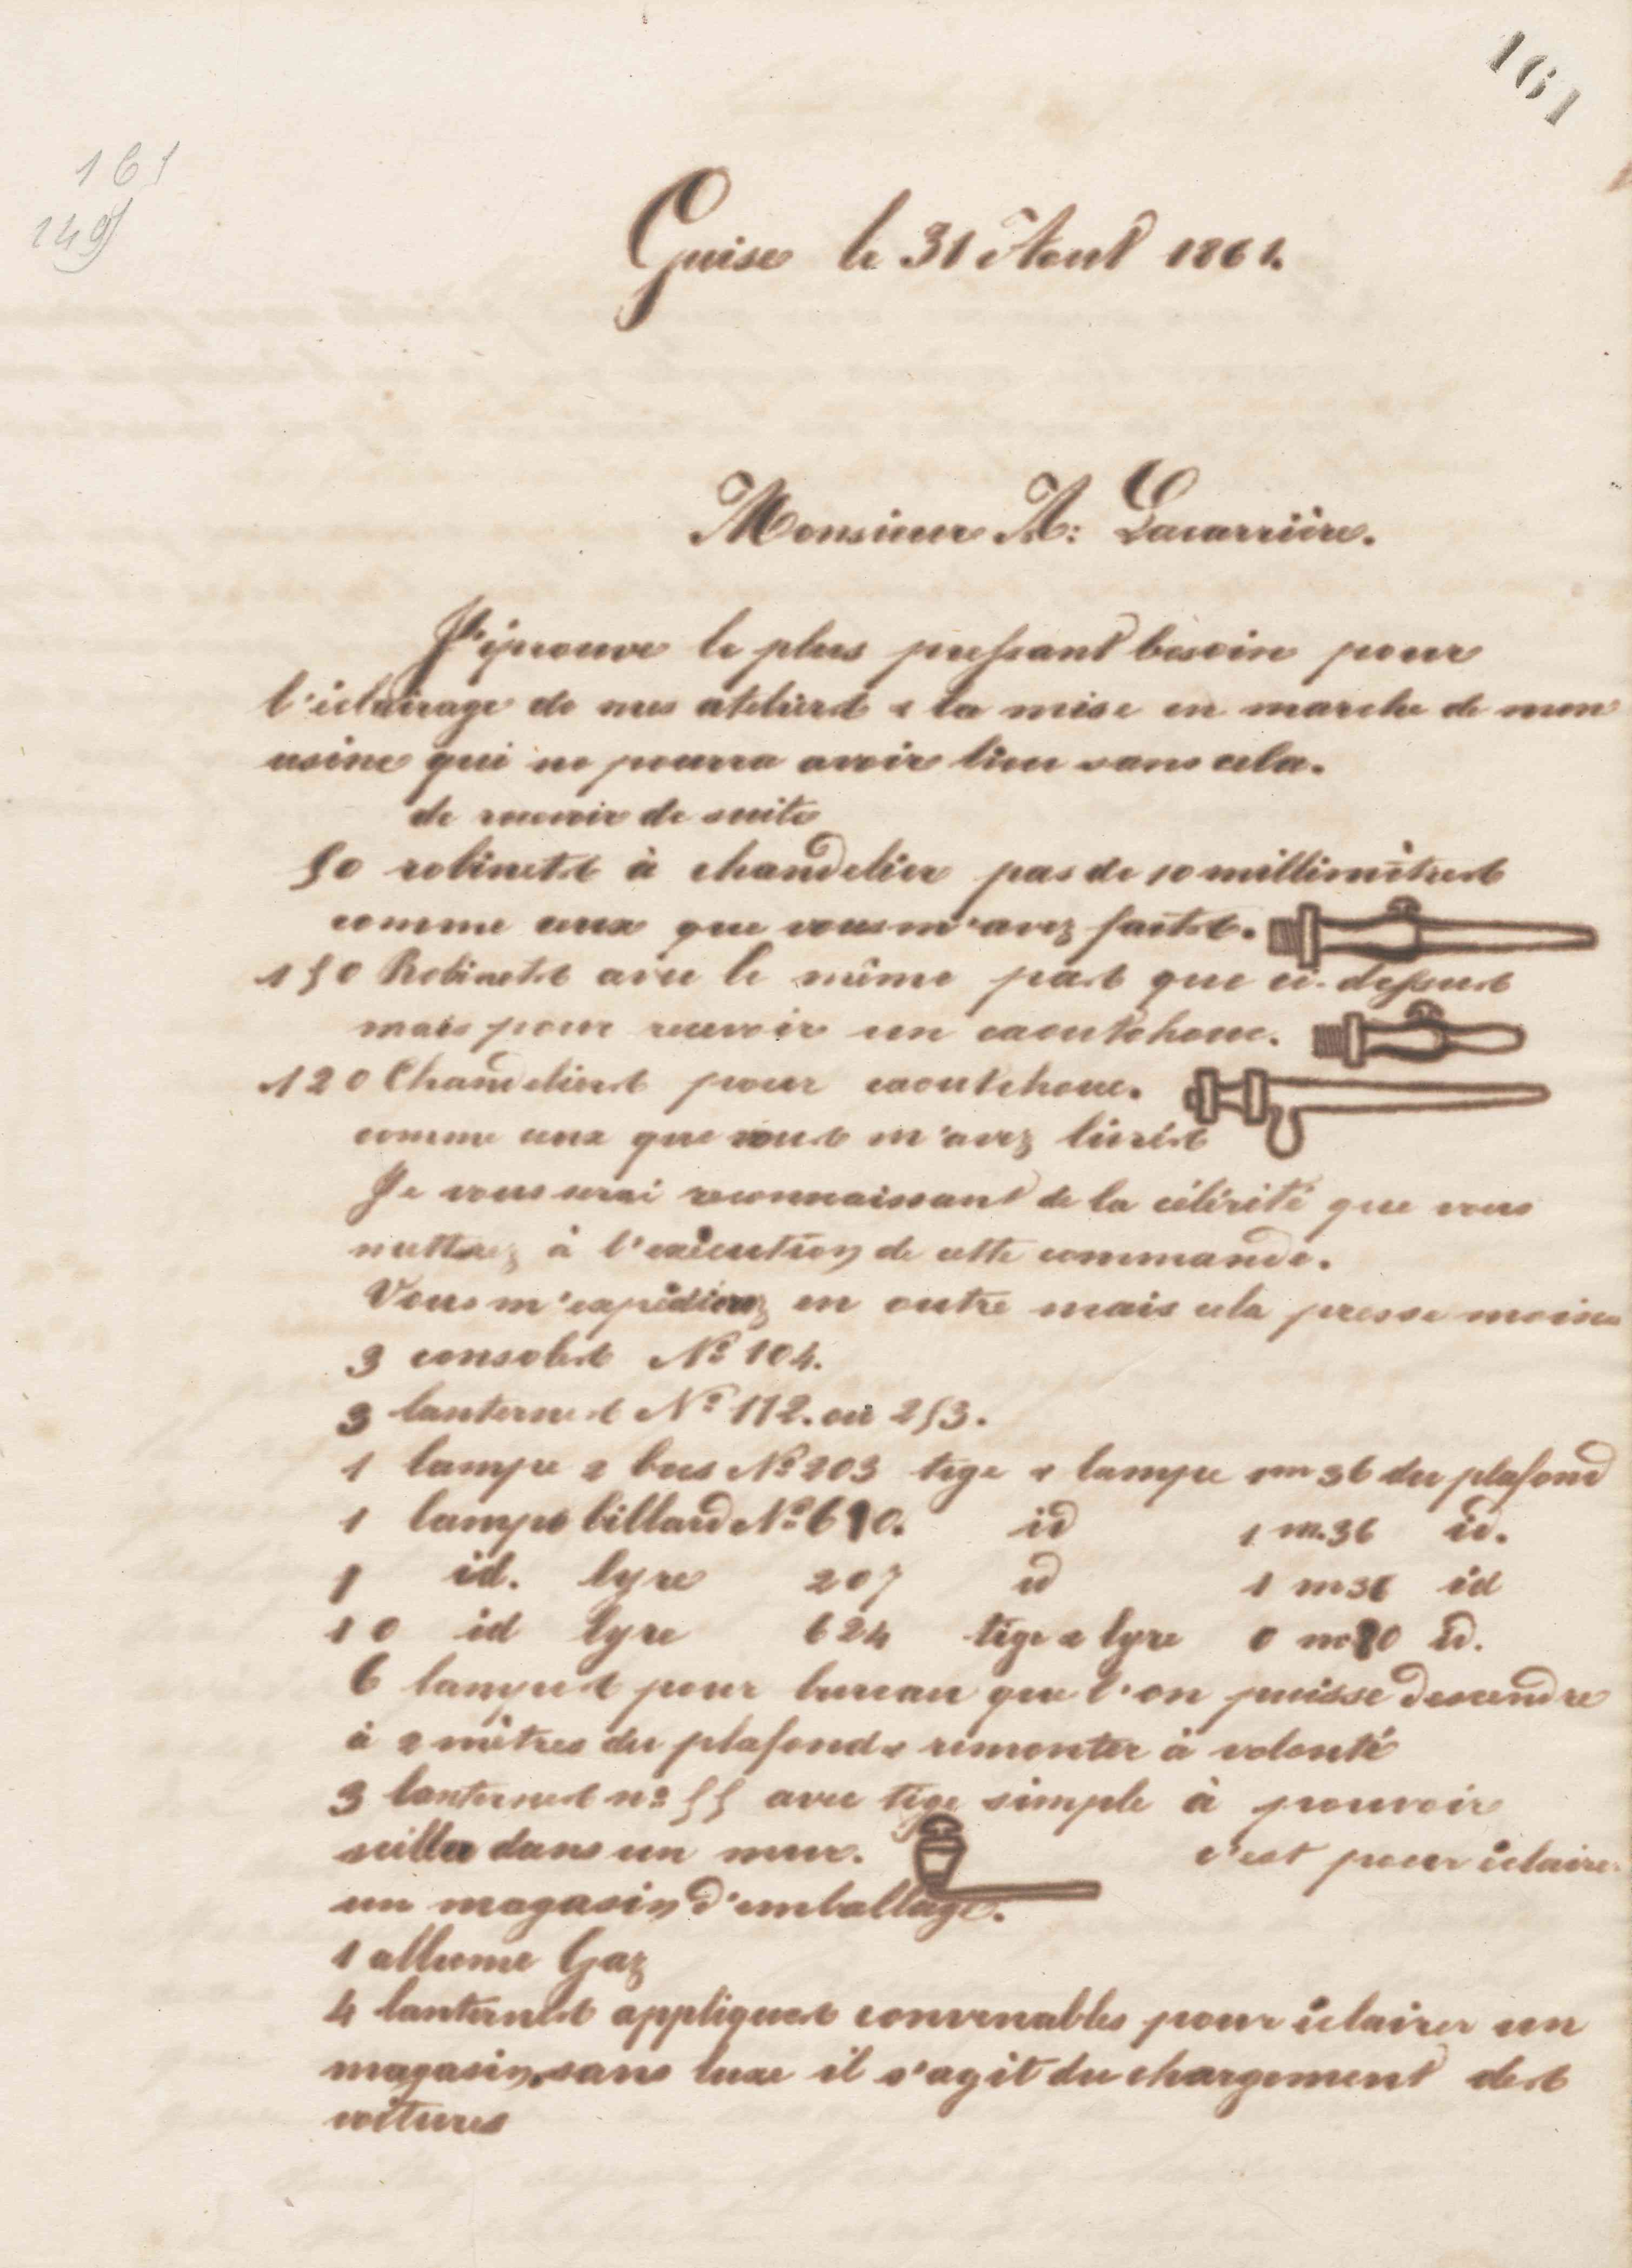 161
161
149
Guise le 31 Aout 1861.
Monsieur A: Lacarrière.
J'éprouve le plus pressant besoin pour
l'éclairage de mes ateliers & la mise en marche de mon
usine qui ne pourra avoir lieu sans cela.
de recevoir de suite
50 robinets à chandelier pas de 10 millimètres
comme ceux que vous m'avez faits.
150 Robinets avec le même pas que ci-dessus
mais pour recevoir un caoutchouc.
120 Chandeliers pour caoutchouc.
comme ceux que vous m'avez livrés
Je vous serai reconnaissant de la célérité que vous
mettrez à l'exécution de cette commande.
Vous m'expédierez en outre mais cela presse moins
3 consoles N° 104.
3 lanternes N° 112. ou 253.
1 lampe 2 becs N° 203 tige & lampe 1m36 du plafond
1 lampe billard N° 610. id 1m.36 id.
1 id. lyre 207 id 1m36 id
10 id lyre 624 tige & lyre 0m80 id.
6 lampes pour bureau que l'on puisse descendre
à 2 mètres du plafond & remonter à volonté
3 lanternes n° 55 avec tige simple à pouvoir
sceller dans un mur. c'est pour éclairer
un magasin d'emballage.
1 allume Gaz
4 lanternes appliques convenables pour éclairer un
magasin, sans luxe il s'agit du chargement des
voitures